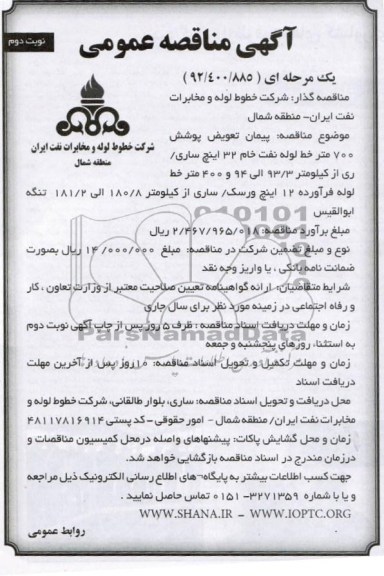 نوبت دوم
آگهی مناقصه عمومی
یک مرحله ای ( ۹۲/۴۰۰/۸۸۵ )
مناقصه گذار: شرکت خطوط لوله و مخابرات
نفت ایران- منطقه شمال
شرکت خطوط لوله و مخابرات نفت ایران
منطقه شمال
موضوع مناقصه: پیمان تعویض پوشش
۷۰۰ متر خط لوله نفت خام ۳۲ اینچ ساری/
ری از کیلومتر ۹۳/۳ الی ۹۴ و ۴۰۰ متر خط
لوله فرآورده ۱۲ اینچ ورسک/ ساری از کیلومتر ۱۸۰/۸ الی ۱۸۱/۲ تنگه
ابوالقیس
مبلغ برآورد مناقصه: ۲/۴۶۷/۹۶۵/۰۱۸ ریال
نوع و مبلغ تضمین شرکت در مناقصه: مبلغ ۱۴/۰۰۰/۰۰۰ ریال بصورت
ضمانت نامه بانکی ، یا واریز وجه نقد
شرایط متقاضیان: ارائه گواهینامه تعیین صلاحیت معتبر از وزارت تعاون ، کار
و رفاه اجتماعی در زمینه مورد نظر برای سال جاری
زمان و مهلت دریافت اسناد مناقصه : ظرف ۵ روز پس از چاپ آگهی نوبت دوم
به استثناء روزهای پنجشنبه و جمعه
زمان و مهلت تکمیل و تحویل اسناد مناقصه: ۱۰روز پس از آخرین مهلت
دریافت اسناد
محل دریافت و تحویل اسناد مناقصه: ساری، بلوار طالقانی، شرکت خطوط لوله و
مخابرات نفت ایران/ منطقه شمال - امور حقوقی - کد پستی ۴۸۱۱۷۸۱۶۹۱۴
زمان و محل گشایش پاکات: پیشنهادهای واصله درمحل کمیسیون مناقصات و
درزمان مندرج در اسناد مناقصه بازگشایی خواهد شد.
جهت کسب اطلاعات بیشتر به پایگاه¬های اطلاع رسانی الکترونیک ذیل مراجعه
و یا با شماره ۳۲۷۱۳۵۹-۰۱۵۱ تماس حاصل نمایید .
WWW.SHANA.IR - WWW.IOPTC.ORG
روابط عمومی
ParsNamadData